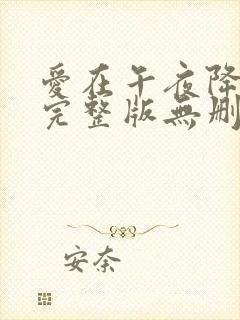 愛在午夜降
完整版無刪
安奈